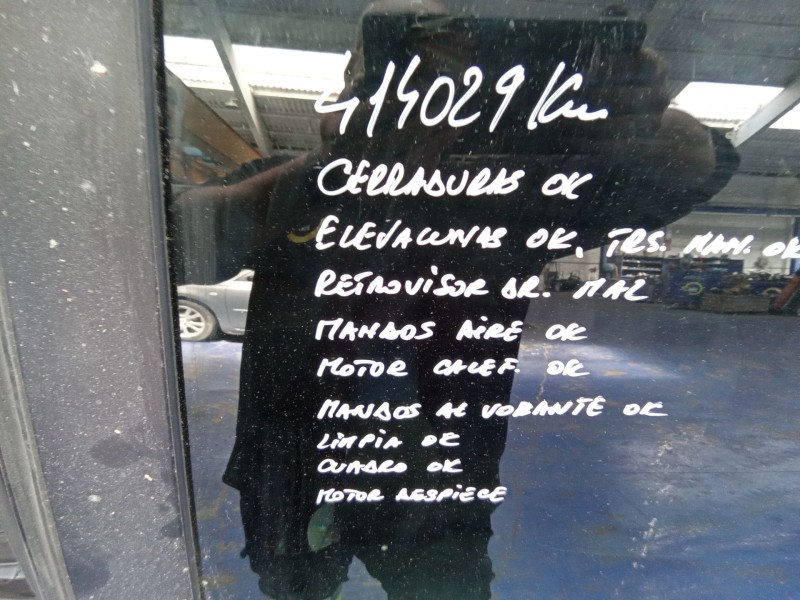 414029 Km
CERRADURAS OK
ELEVALUNAS OK, TRS. MAN. OK
RETROVISOR DR. MAL
MANDOS AIRE OK
MOTOR CALEF. OK
MANDOS AL VOLANTE OK
LIMPIA OK
CUADRO OK
MOTOR DESPIECE